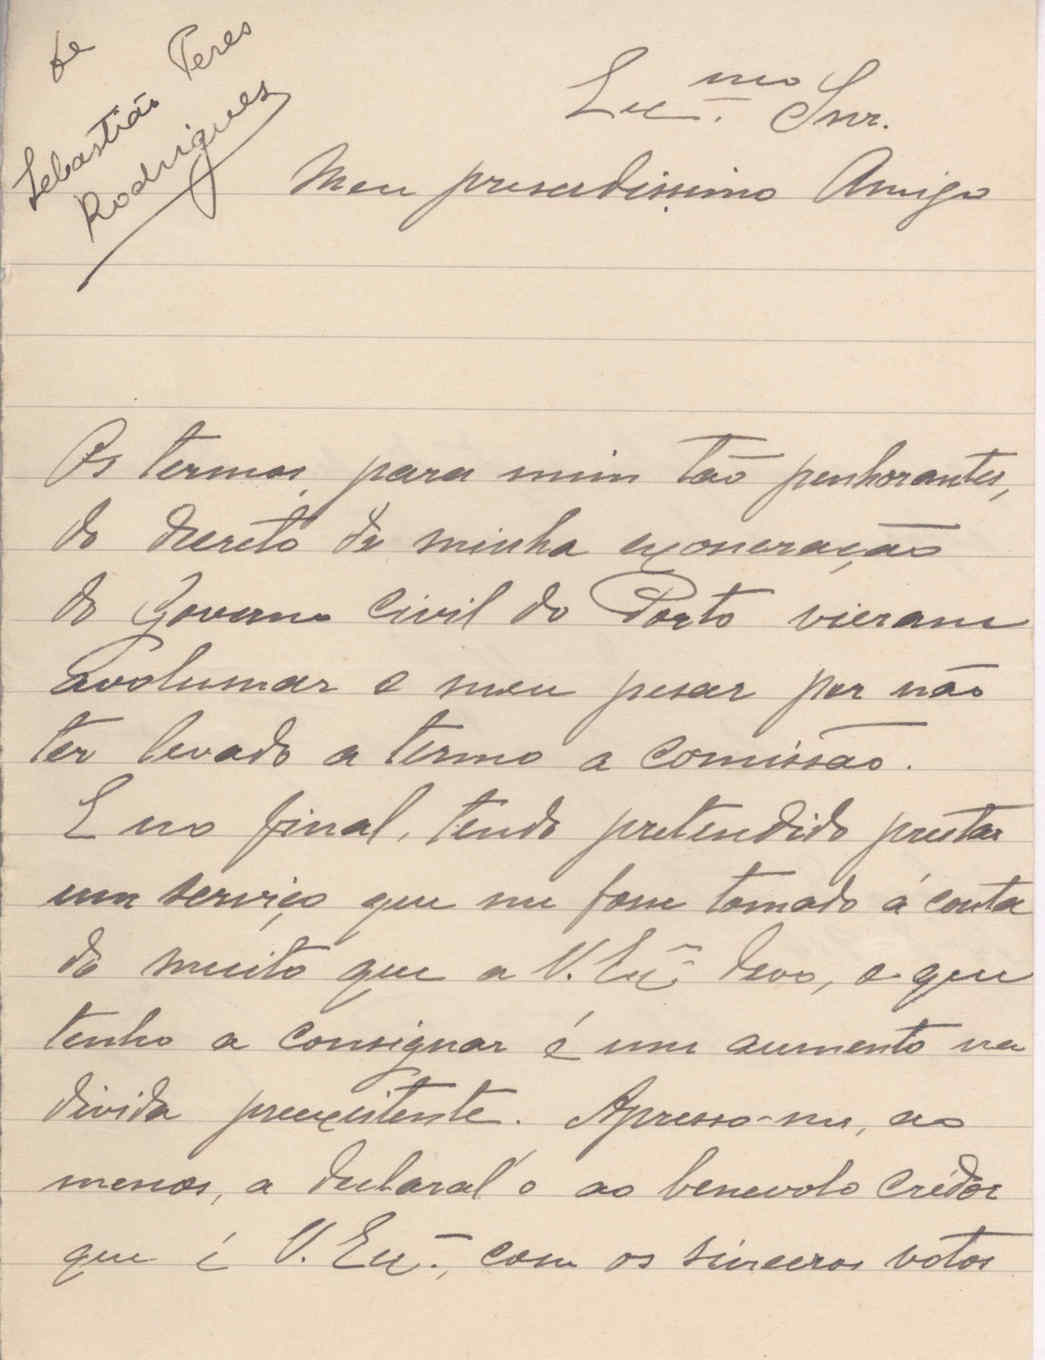 de
Sebastião Peres
Rodrigues
Exc.mo Snr.
Meu presadissimo Amigo
Os termos, para mim tão penhorantes,
do decreto da minha exoneração
do Governo Civil do Porto vieram
avolumar o meu pesar por não
ter levado a termo a comissão.
E no final, tendo pretendido prestar
um serviço que me fosse tomado á conta
do muito que a V. Exª devo, o que
tenho a consignar é um aumento na
divida preexistente. Apresso-me, ao
menos, a declaral'o ao benevolo crédor
que é V. Exª., com os sinceros votos